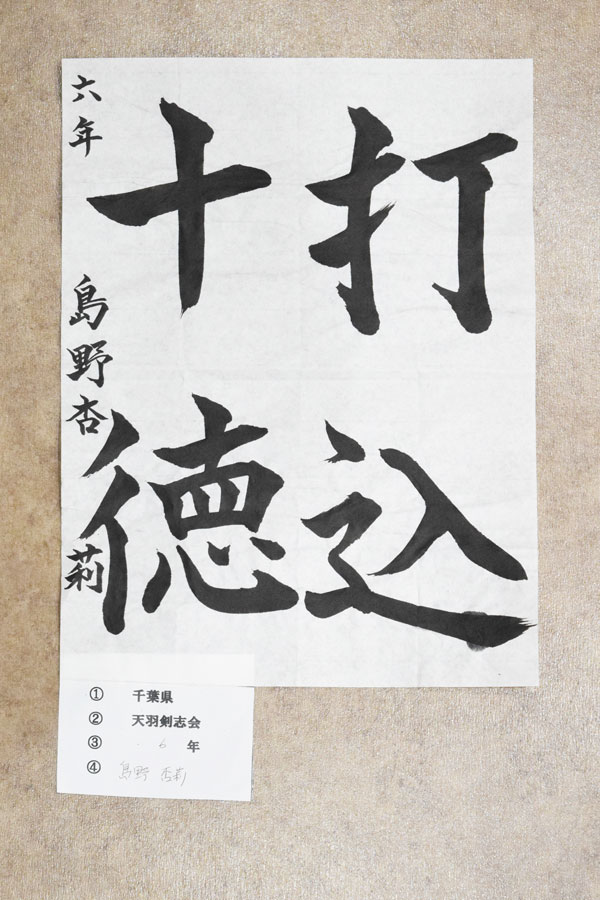 打込
十徳
六年 島野杏莉
① 千葉県
② 天羽剣志会
③ 6 年
④ 島野 杏莉